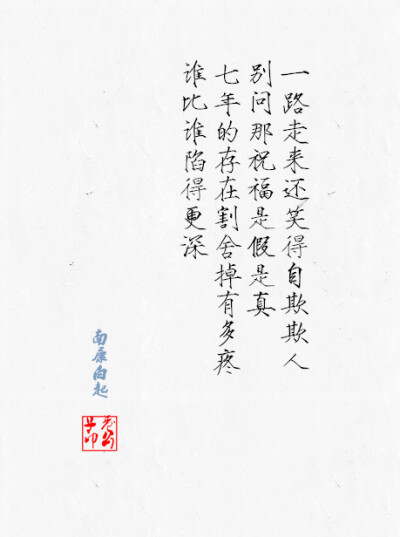 一路走来还笑得自欺欺人
别问那祝福是假是真
七年的存在割舍掉有多疼
谁比谁陷得更深
南康白起